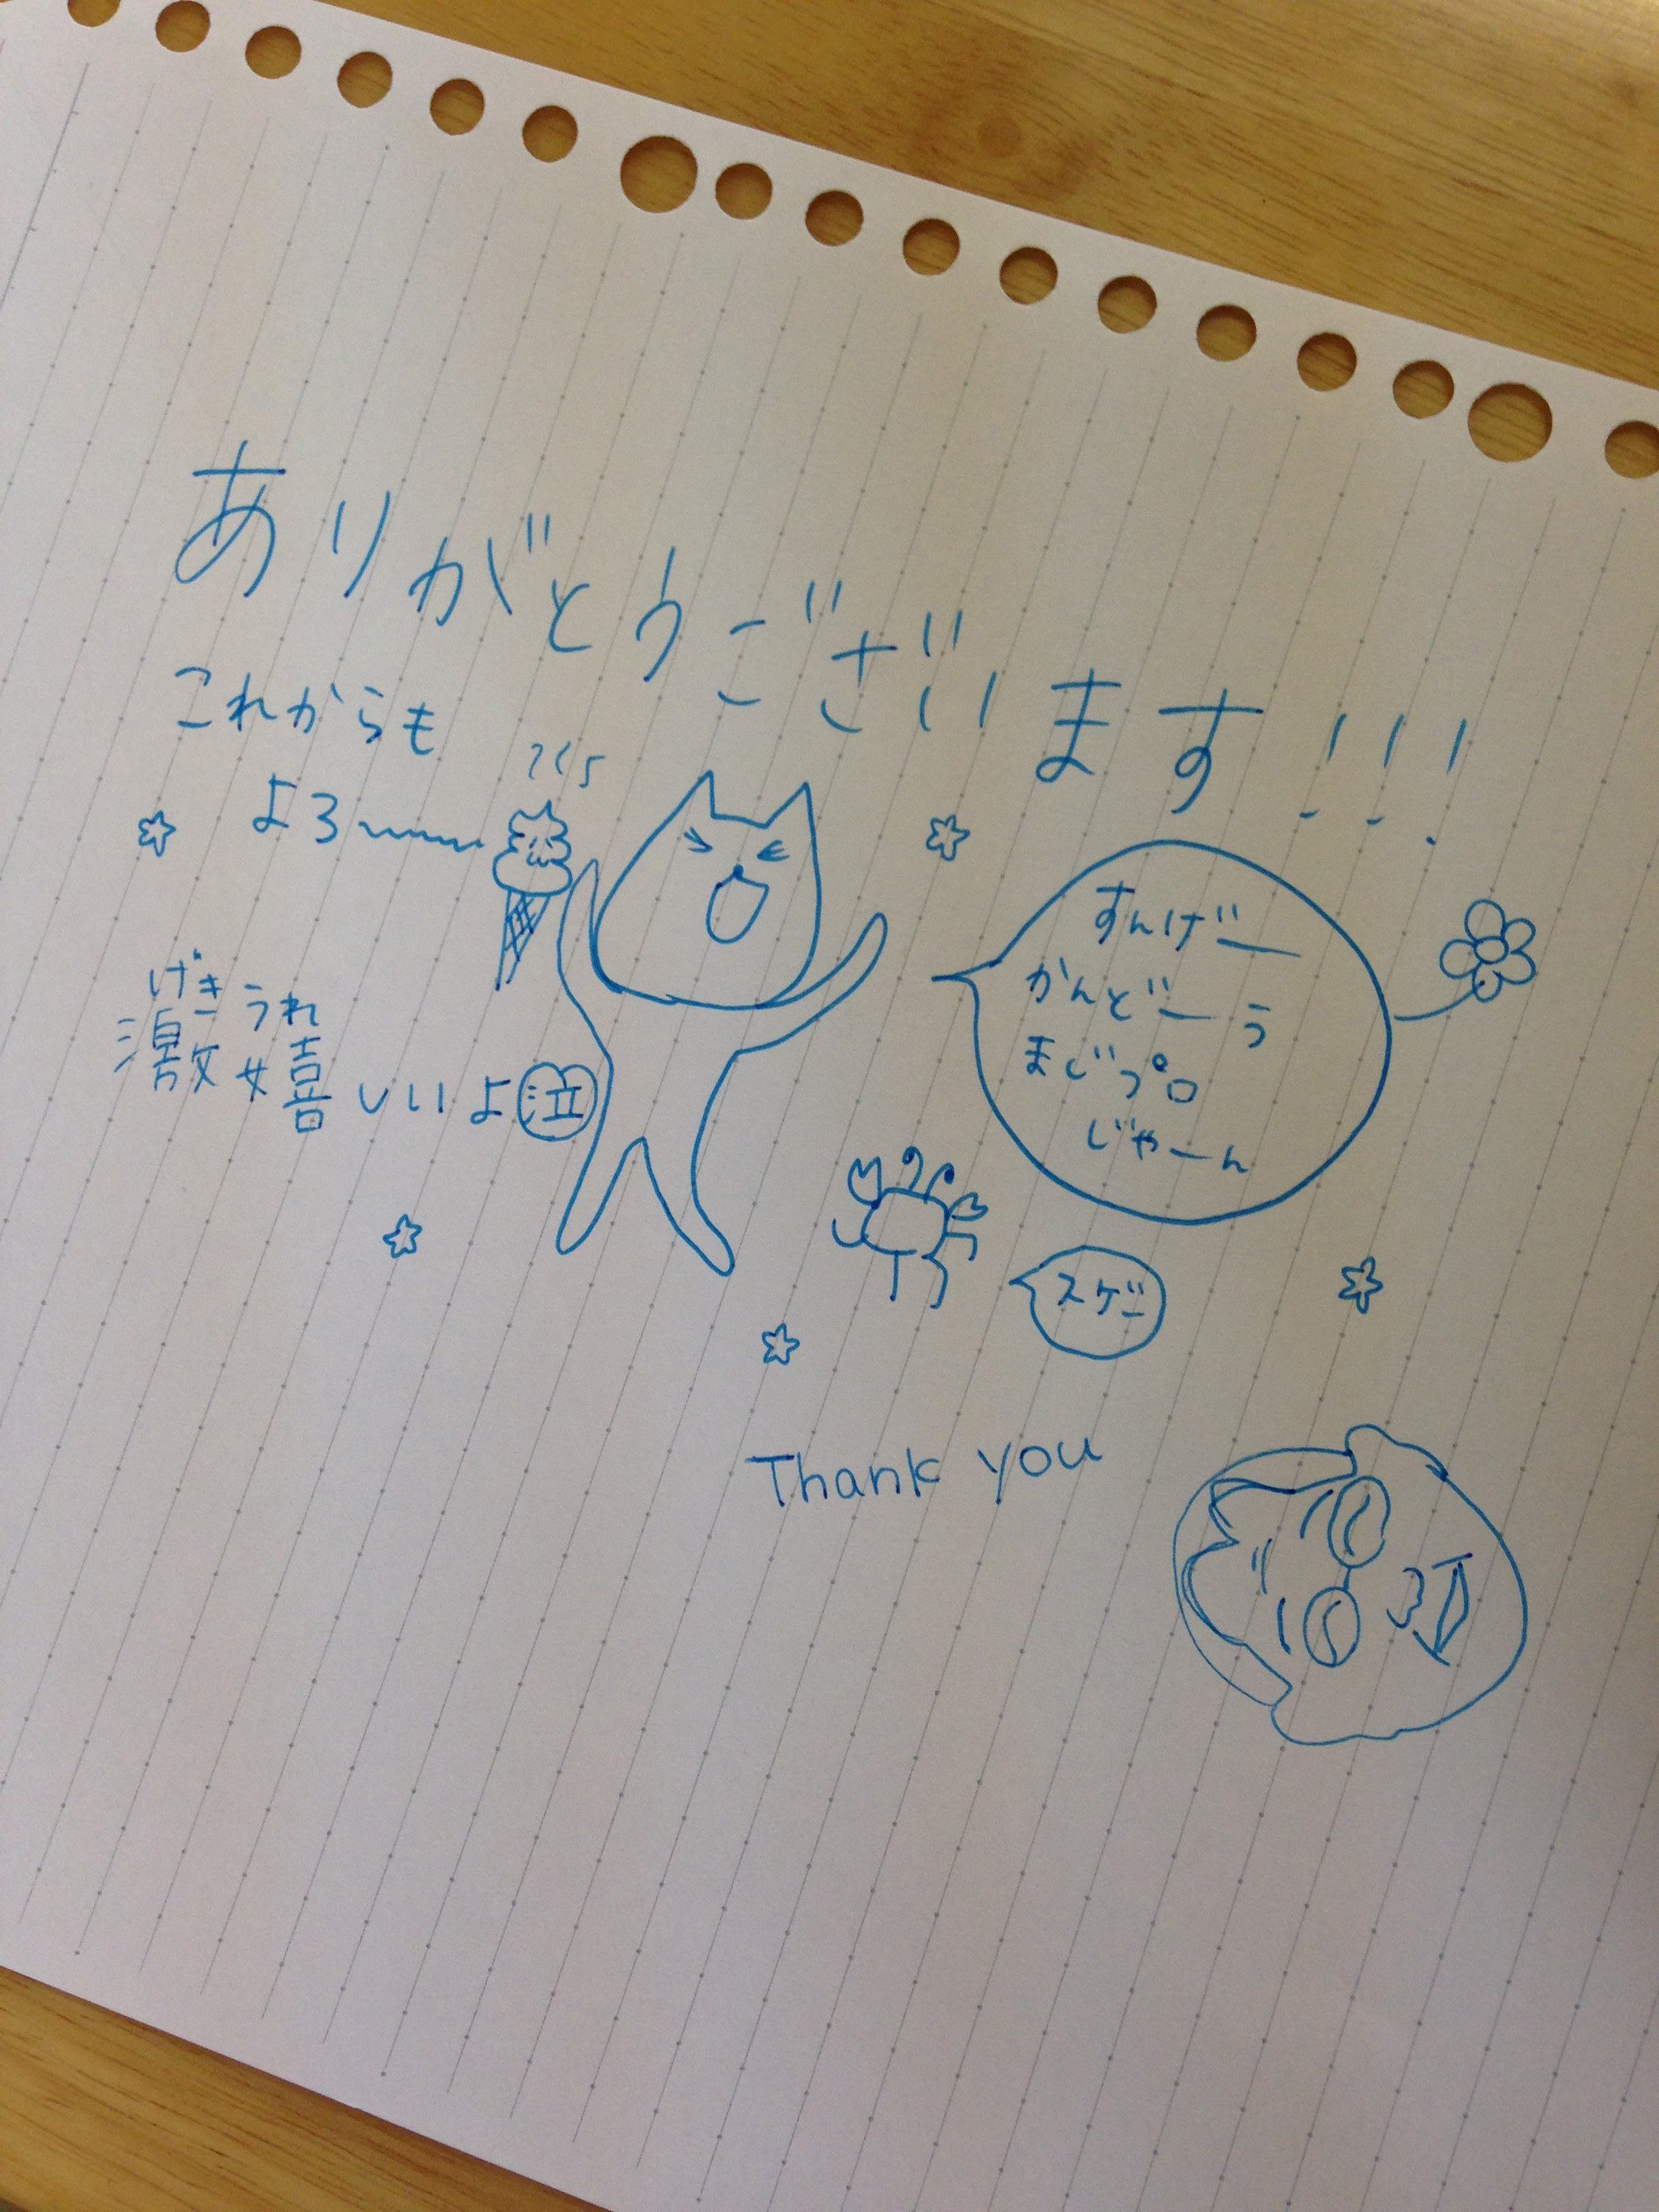 ありがとうございます!!!
これからも
よろ〜〜〜
げきうれ
激嬉しいよ
すんげー
かんどーう
まじプロ
じゃーん
スゲー
Thank you